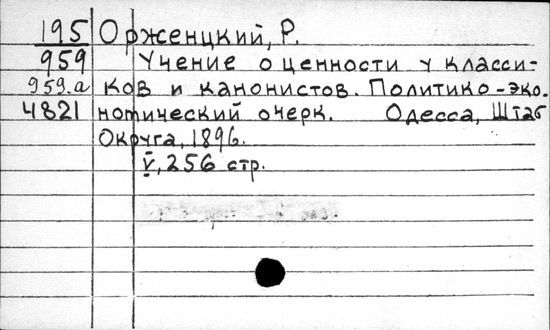 195 Орженцкий, Р.
959 Учение о ценности у класси-
959.а ков и канонистов. Политико-эко.
4821 номический очерк. Одесса, Штаб
Округа, 1896.
V, 256 стр.